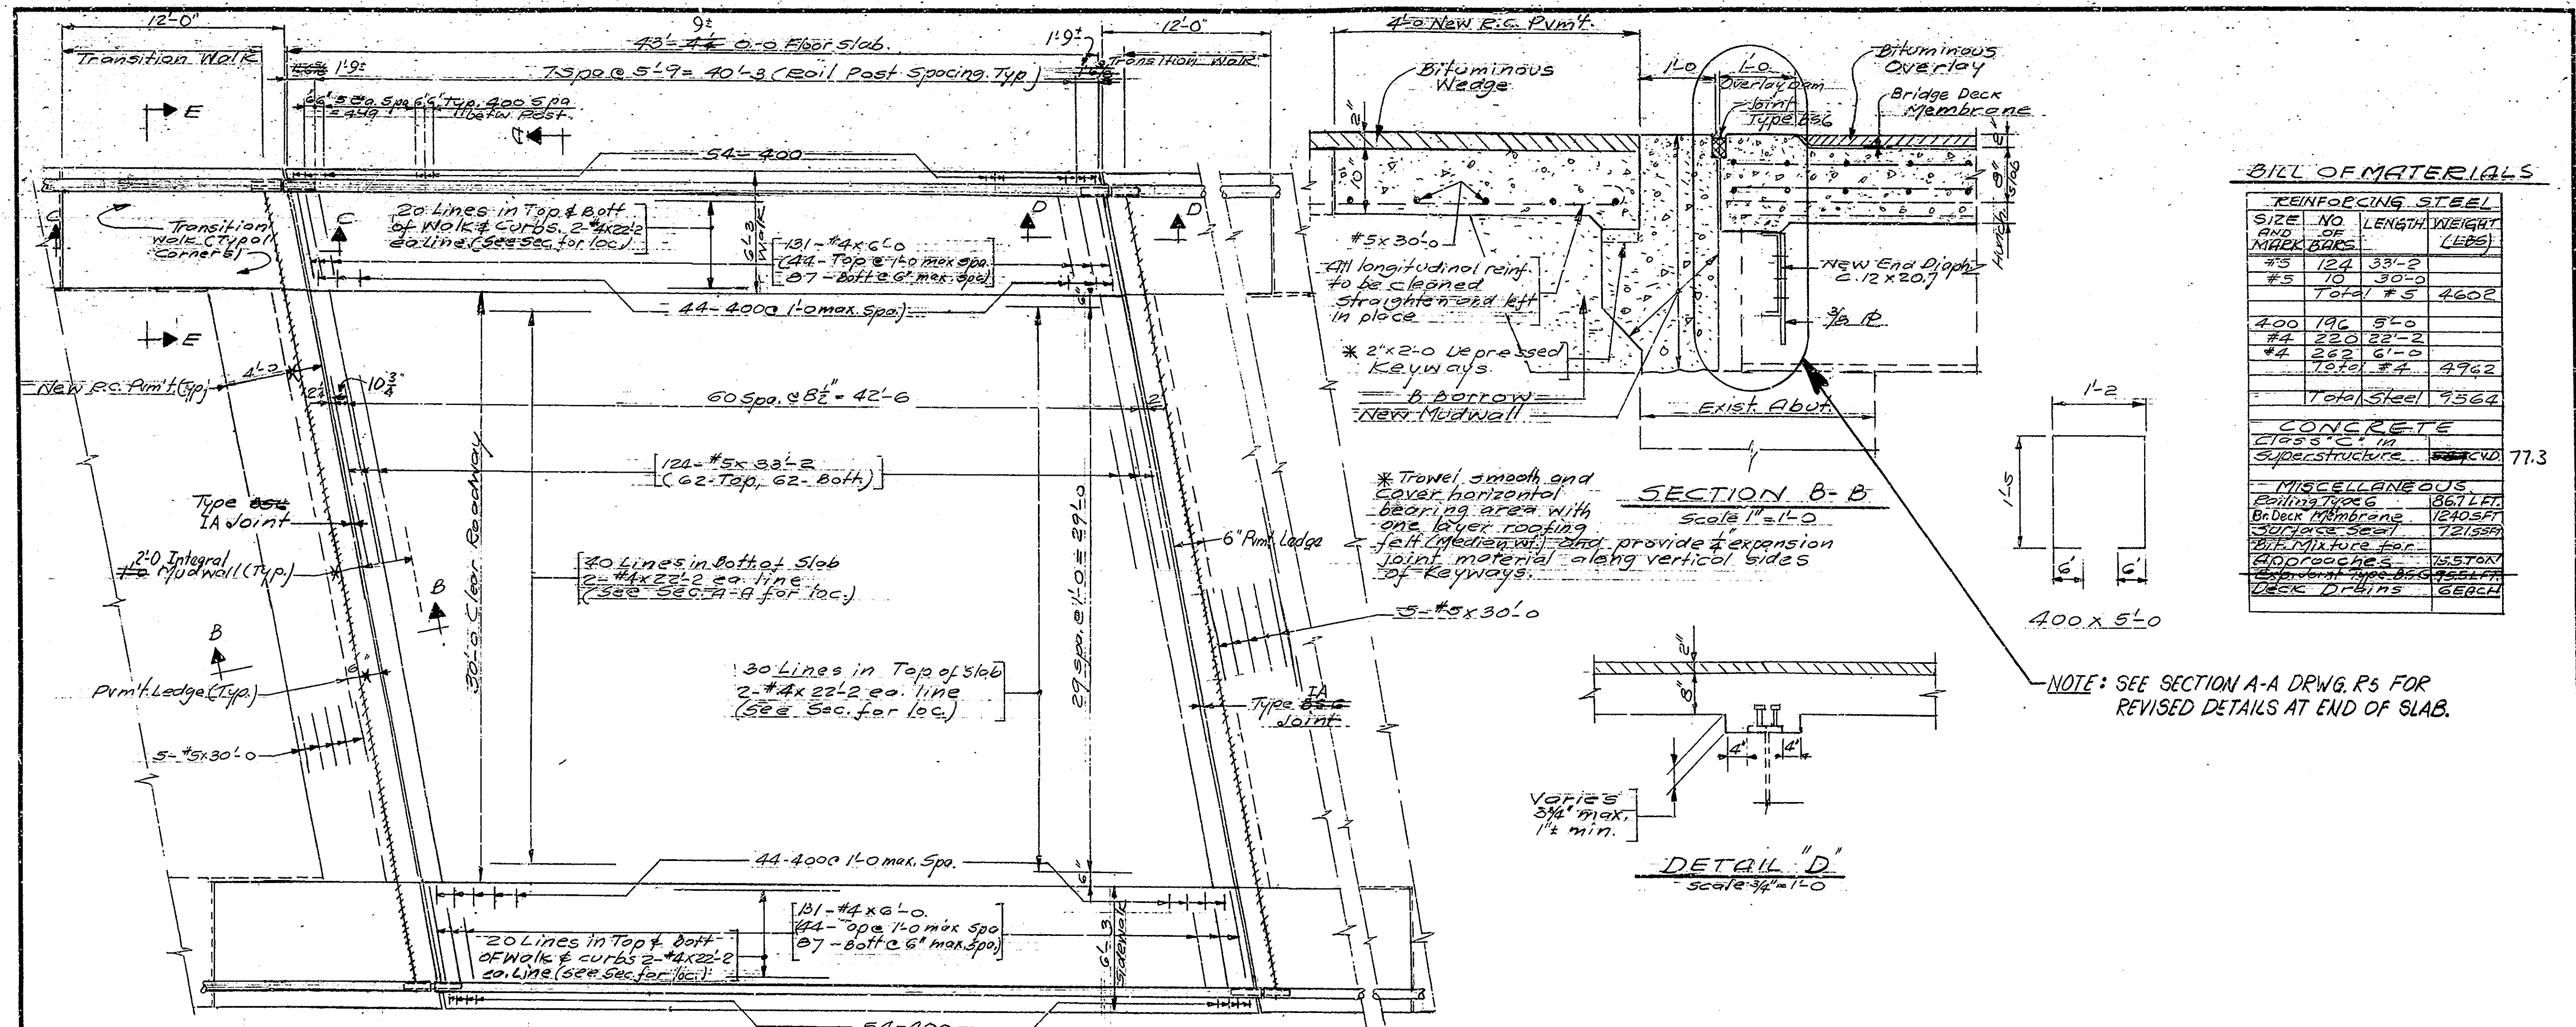 12'-0"
9±
43'-4¼ 0-0 Floor Slab.
1'9±
12'-0"
Transition Walk
1'9±
7 Spa @ 5'-9 = 40'-3 (Rail Post Spacing Typ.)
Transition Walk
6" 6" 5 ea. Spa 6" 6" Typ. 400 Spa
= 4'-9 betw. Post.
E
A
54-400
C
C
D
D
Transition
Walk (Typ all
Corners)
20 Lines in Top & Bott
of Walk & Curbs. 2-#4x22'-2
ea Line (See Sec for loc.)
6'-3
Walk
131-#4x6'-0
(44-Top @ 1'-0 max spa.
87-Bott @ 6" max. spa.)
44-400@ 1'-0 max spa.)
6"
E
New R.C. Pvm't. (Typ)
4'-0
10 3/4"
60 Spa. @ 8½" = 42'-6
2"
30'-0 Clear Roadway
124-#5x33'-2
(62-Top, 62-Bott.)
Type BSG
IA Joint
2'-0 Integral
Mudwall (Typ.)
40 Lines in Bott of Slab
2-#4x22'-2 ea. line
(See Sec. A-A for loc.)
29 spa. @ 1'-0 = 29'-0
6" Pvm't. Ledge
B
B
6"
Pvm't. Ledge (Typ.)
30 Lines in Top of Slab
2-#4x22'-2 ea. line
(See Sec. for loc.)
5-#5x30'-0
IA
Type BSG
Joint
5-#5x30'-0
44-400@ 1'-0 max. Spa.
6"
131-#4x6'-0.
(44-Top @ 1'-0 max Spa
87-Bott @ 6" max. Spa.)
20 Lines in Top & Bott
of Walk & curbs 2-#4x22'-2
ea. Line (see Sec. for loc.)
6'-3
Sidewalk
54-400
4'-0 New R.C. Pvm't.
Bituminous
Wedge
1'-0
1'-0
Overlay Dam
Joint
Type BSG
Bituminous
Overlay
Bridge Deck
Membrane
2"
10"
2"
8"
Slab
Haunch
#5x30'-0
All longitudinal reinf.
to be cleaned
straighten and left
in place
New End Diaph
C 12 x 20.7
3/8 PL
* 2"x2'-0 Depressed
Keyways.
B Borrow
New Mudwall
Exist. Abut.
* Trowel smooth and
cover horizontal
bearing area with
one layer roofing
felt (Medien wt.) and provide ¼" expansion
joint material along vertical sides
of Keyways.
SECTION B-B
Scale 1"=1'-0
2"
8"
4"
4"
Varies
3¾" max.
1"± min.
DETAIL "D"
Scale 3/4"=1'-0
1'-2
1'-5
6"
6"
400 x 5'-0
NOTE: SEE SECTION A-A DRWG. R5 FOR
REVISED DETAILS AT END OF SLAB.
BILL OF MATERIALS
REINFORCING STEEL
SIZE AND MARK NO. OF BARS LENGTH WEIGHT (LBS)
#5 124 33'-2
#5 10 30'-0
Total #5 4602
400 196 5'-0
#4 220 22'-2
#4 262 6'-0
Total #4 4962
Total Steel 9564
CONCRETE
Class "C" in
Superstructure CYD. 77.3
MISCELLANEOUS
Railing Type 6 86.7 LFT.
Br. Deck Membrane 1240 SFT
Surface Seal
Bit. Mixture for
Approaches 15.5 TON
Exp. Joint Type BSG 95.5 LFT.
Deck Drains 6 EACH